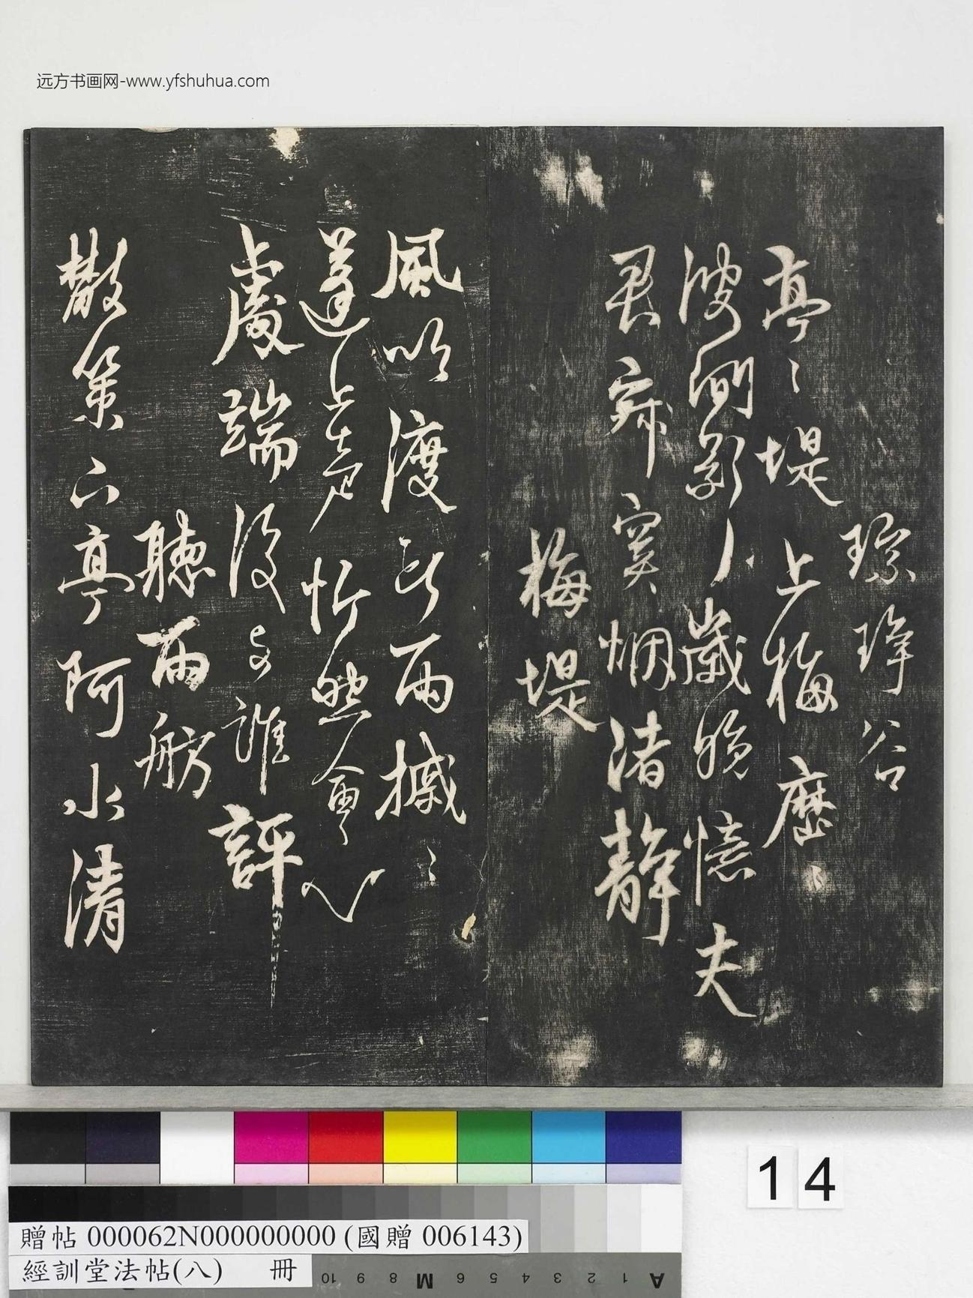 远方书画网-www.yfshuhua.com
琮琤谷
亭〻堤上梅歷〻
波間影歲晚憶夫
君寂寞烟渚静
梅堤
風吹渡頭雨摵〻
蓬上聲忻然會心
處端復與誰評
聽雨舫
散策下亭阿水清
14
贈帖 000062N000000000 (國贈 006143)
經訓堂法帖(八) 冊
10 9 8 M 6 5 4 3 2 1 A